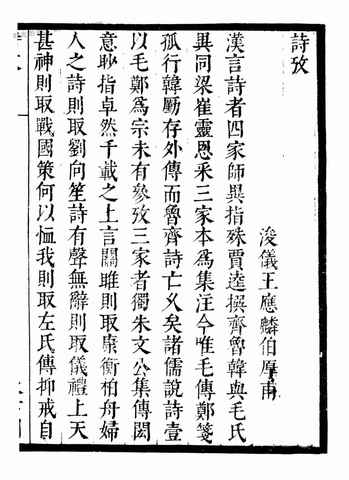 詩攷
浚儀王應麟伯厚甫
漢言詩者四家師異指殊賈逵撰齊魯韓與毛氏
異同梁崔靈恩采三家本爲集注今唯毛傳鄭箋
孤行韓厪存外傳而魯齊詩亡久矣諸儒說詩壹
以毛鄭爲宗未有參攷三家者獨朱文公集傳閎
意眇指卓然千載之上言關雎則取康衡柏舟婦
人之詩則取劉向笙詩有聲無辭則取儀禮上天
甚神則取戰國策何以恤我則取左氏傳抑戒自